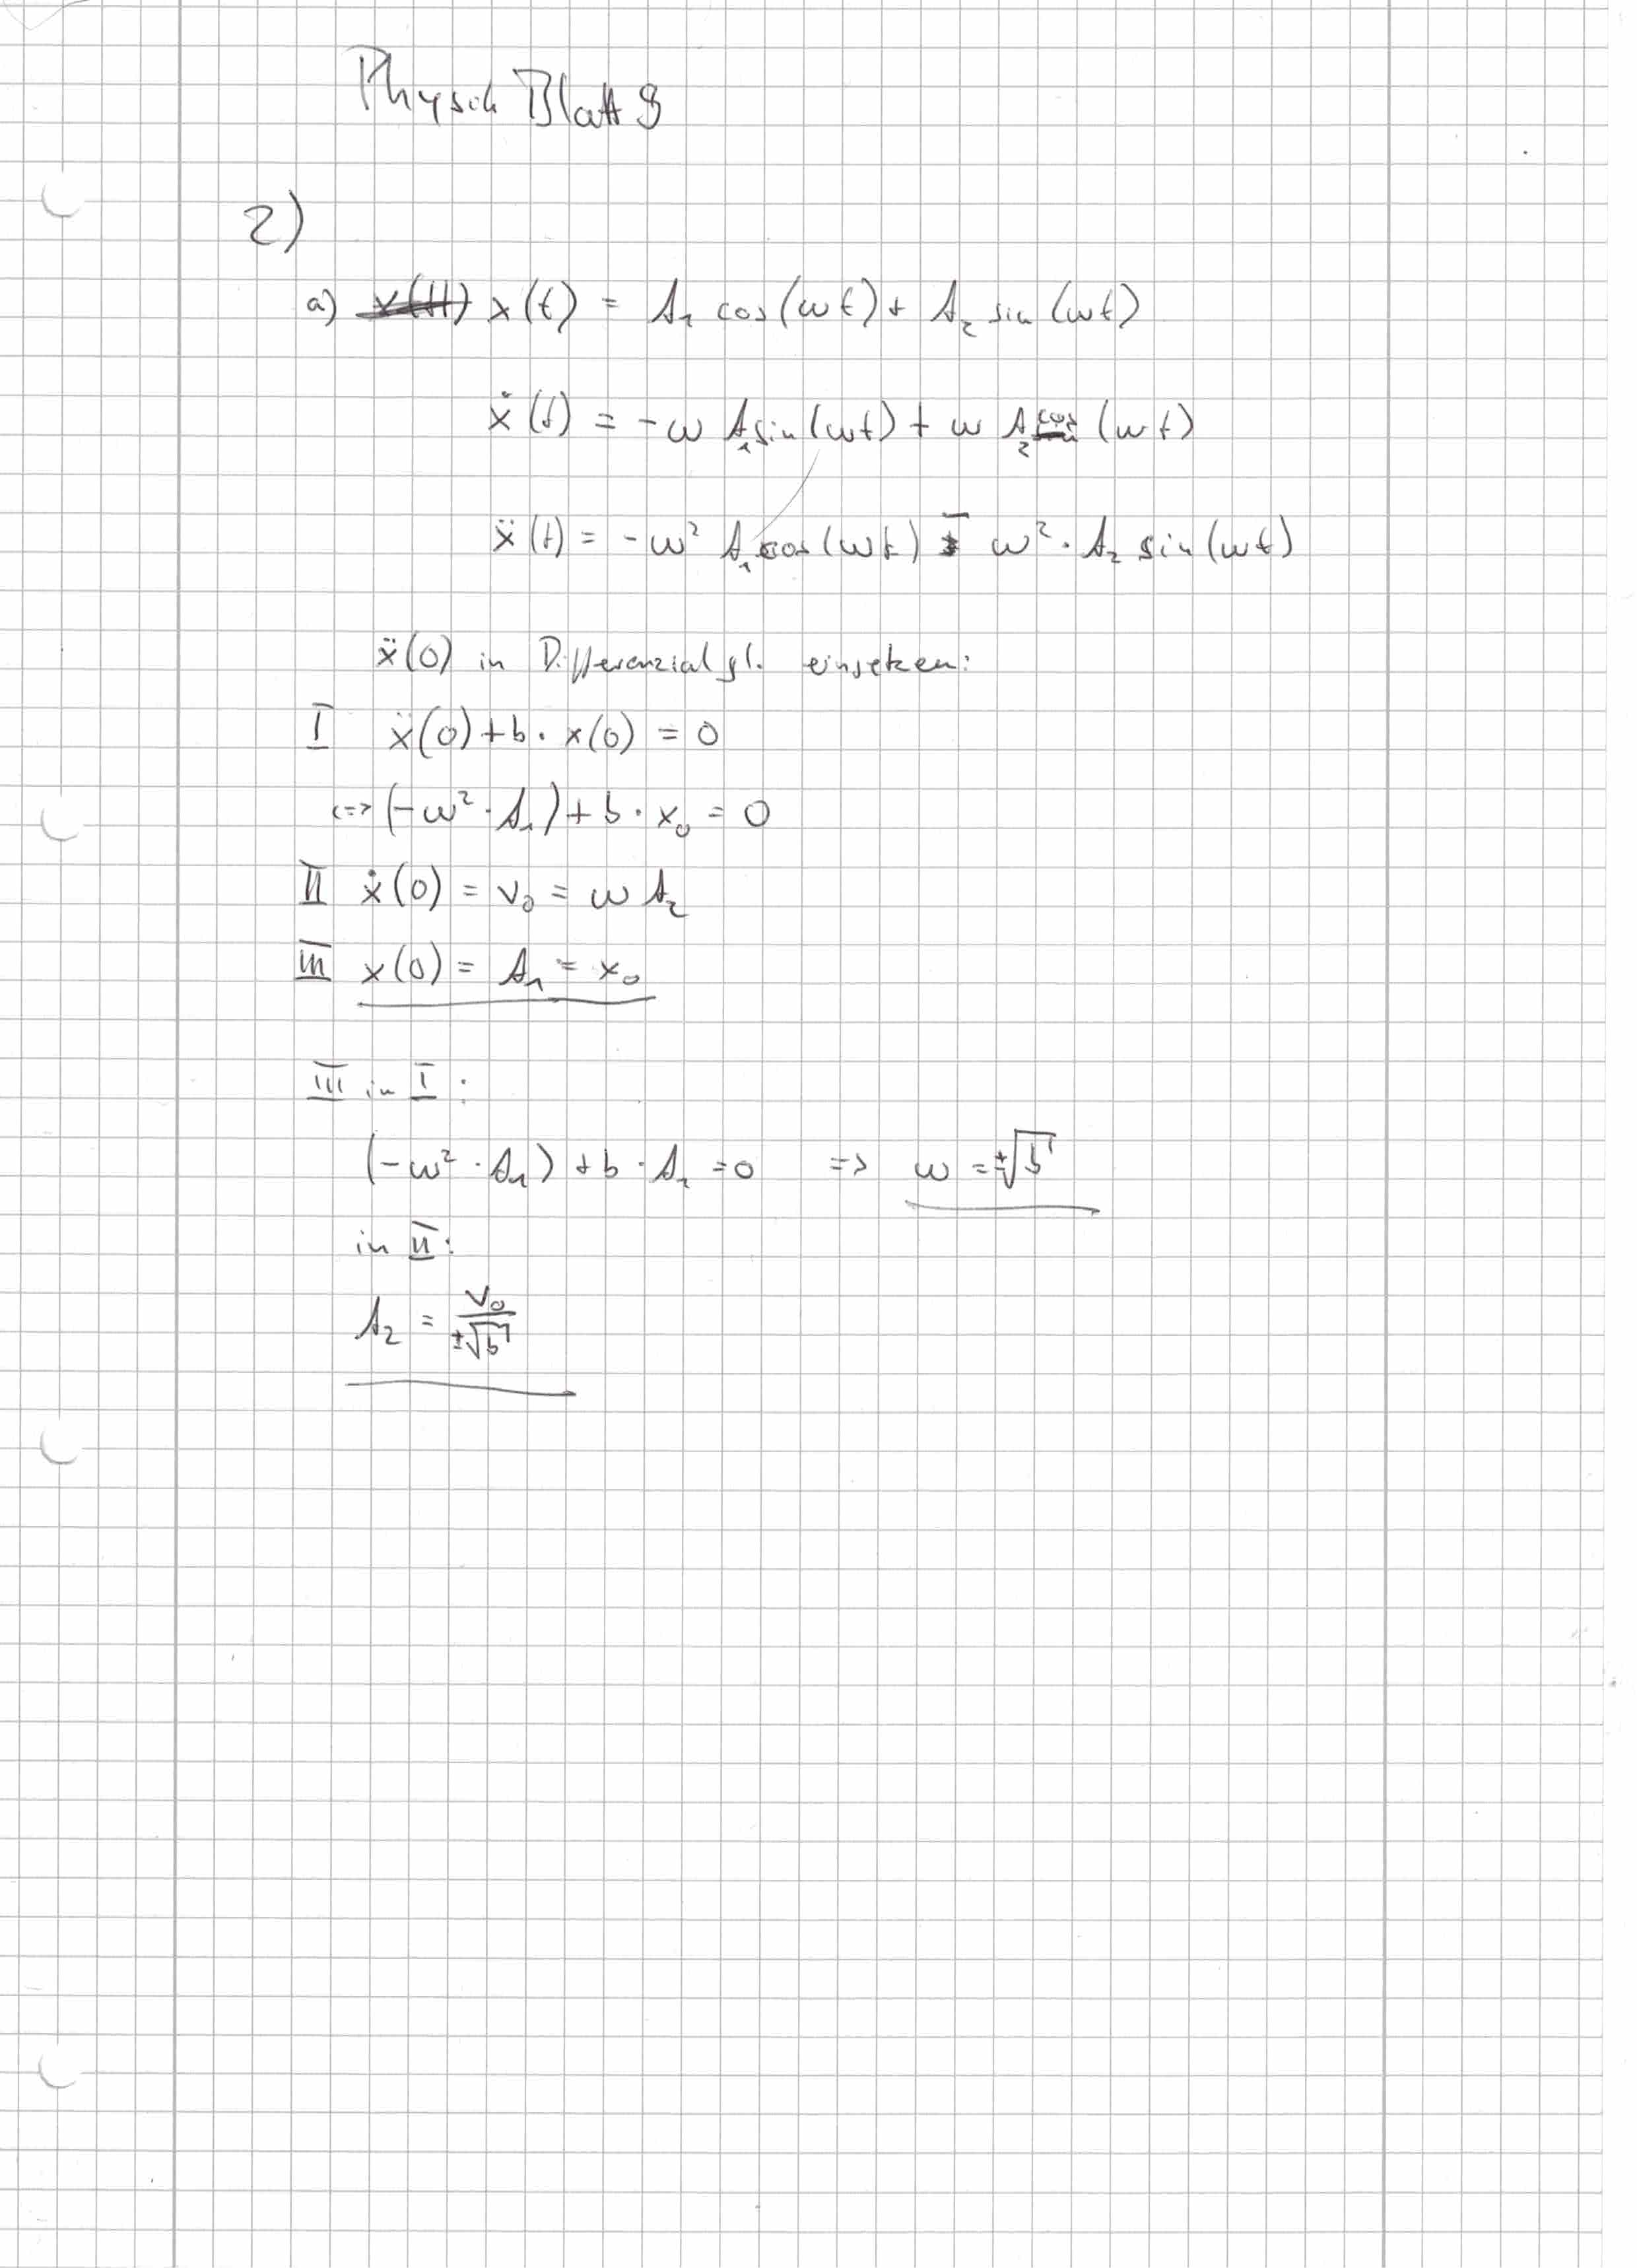 Physik Blatt 9
2)
a) x(t) = A₁ cos(ωt) + A₂ sin(ωt)
ẋ(t) = -ω A₁ sin(ωt) + ω A₂ cos(ωt)
ẍ(t) = -ω² A₁ cos(ωt) - ω² · A₂ sin(ωt)
ẍ(0) in Differenzialgl. einsetzen:
I ẍ(0) + b · x(0) = 0
<=> (-ω² · A₁) + b · x₀ = 0
II ẋ(0) = v₀ = ω A₂
III x(0) = A₁ = x₀
III in I :
(-ω² · A₁) + b · A₁ = 0 => ω = ±√b
in II:
A₂ = v₀ / ±√b